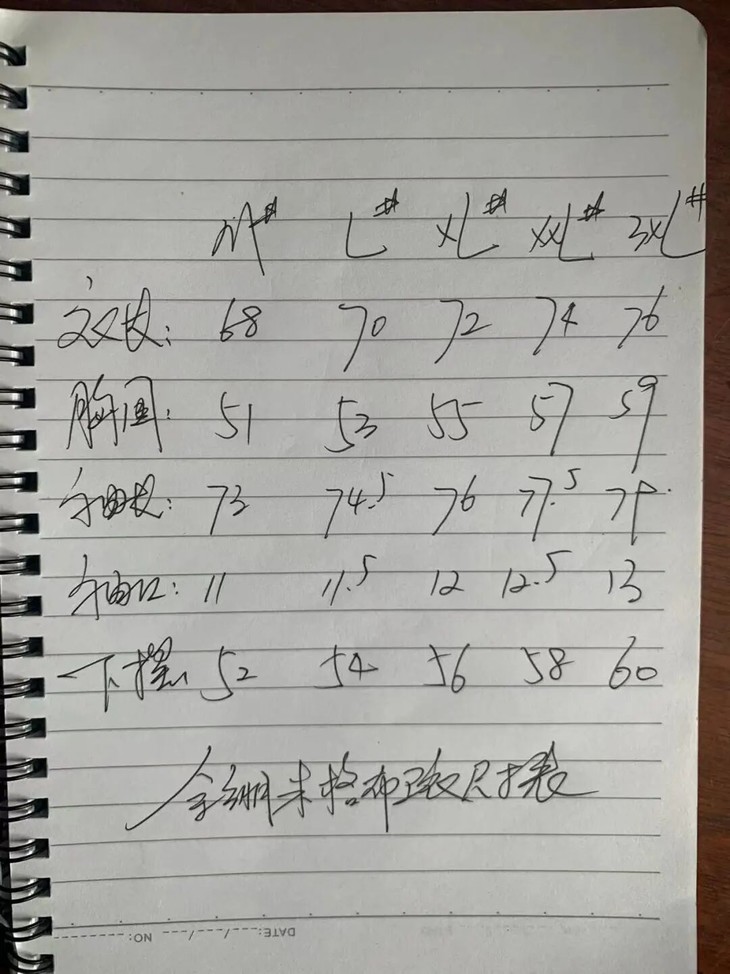 M# L# XL# XXL# 3XL#
衣长: 68 70 72 74 76
胸围: 51 53 55 57 59
袖长: 73 74.5 76 77.5 79
袖口: 11 11.5 12 12.5 13
下摆: 52 54 56 58 60
米格布 尺寸表
DATE: NO: